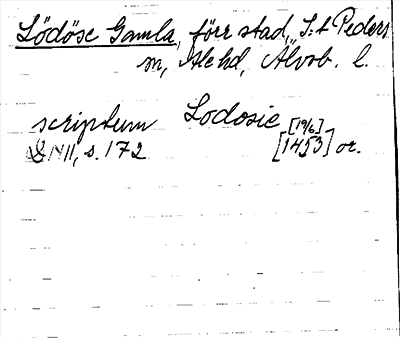 Lödöse Gamla, förr stad, S:t Peders
sn, Ale hd, Älvsb. l.
scriptum Lodosie [19/6]
s. 172 [1453] or.